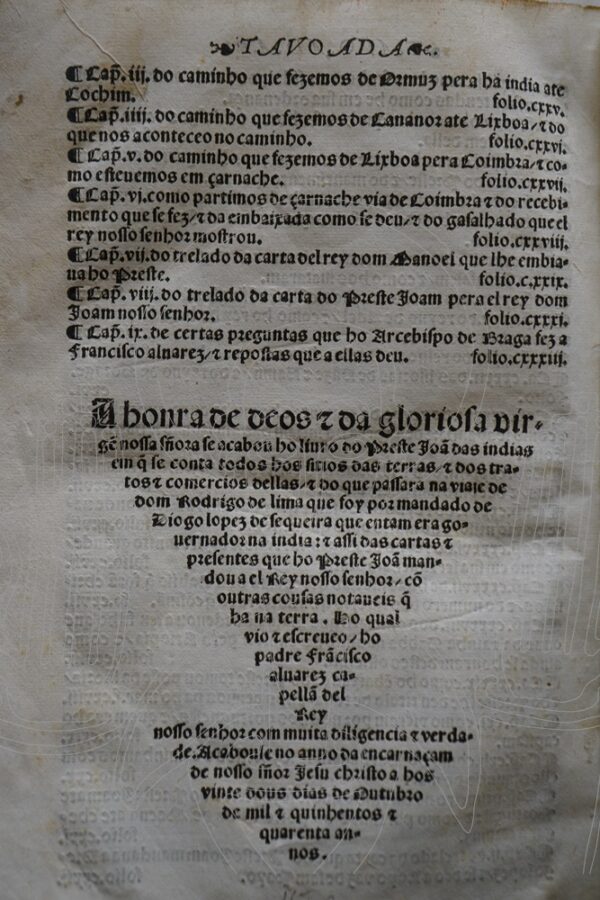 TAVOADA
¶ Cap̃. iij. do caminho que fezemos de Ormuz pera ha india ate
Cochim. folio.cxxv.
¶ Cap̃. iiij. do caminho que fezemos de Cananor ate Lixboa/ ⁊ do
que nos aconteceo no caminho. folio.cxxvj.
¶ Cap̃. v. do caminho que fezemos de Lixboa pera Coimbra/ ⁊ co-
mo esteuemos em çarnache. folio.cxxvij.
¶ Cap̃. vj. como partimos de çarnache via de Coimbra ⁊ do recebi-
mento que se fez/ ⁊ da embaixada como se deu/ ⁊ do gasalhado que el
rey nosso senhor mostrou. folio.cxxviij.
¶ Cap̃. vij. do trelado da carta del rey dom Manoel que lhe embia-
ua ho Preste. folio.c.xxix.
¶ Cap̃. viij. do trelado da carta do Preste Joam pera el rey dom
Joam nosso senhor. folio.cxxxj.
¶ Cap̃. ix. de certas preguntas que ho Arcebispo de Braga fez a
Francisco aluarez/ ⁊ repostas que a ellas deu. folio.cxxxiij.
A honra de deos ⁊ da gloriosa vir-
gẽ nossa sñora se acabou ho liuro do Preste Joã das indias
em q̃ se conta todos hos sitios das terras/ ⁊ dos tra-
tos ⁊ comercios dellas/ ⁊ do que passara na viaje de
dom Rodrigo de lima que foy por mandado de
Diogo lopez de sequeira que entam era go-
uernador na india: ⁊ assi das cartas ⁊
presentes que ho Preste Joã man-
dou a el Rey nosso senhor/ cõ
outras cousas notaueis q̃
ha na terra. Ho qual
vio ⁊ escreueo/ ho
padre frãcisco
aluarez ca-
pellã del
Rey
nosso senhor com muita diligencia ⁊ verda-
de. Acabouse no anno da encarnaçam
de nosso sñor Jesu christo a hos
vinte dous dias de Outubro
de mil ⁊ quinhentos ⁊
quarenta an-
nos.